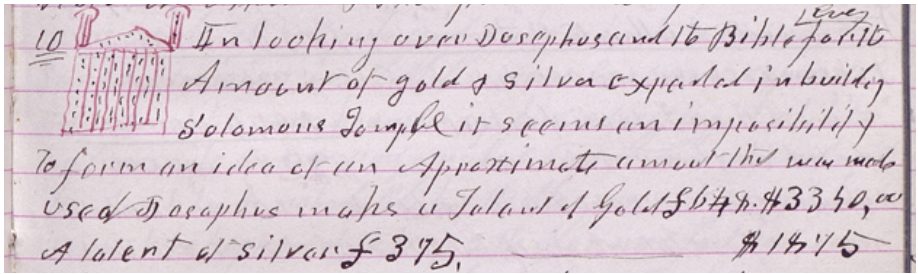 10 In looking over Josephus and th Bible for th
Amount of gold & silver expended in building
Solomons Temple it seems an imposibility
To form an idea of an Aproximate amount tht was made
used Josephus maks a Talant of Gold £648. $3340,00
A talent of silver £375. $1875